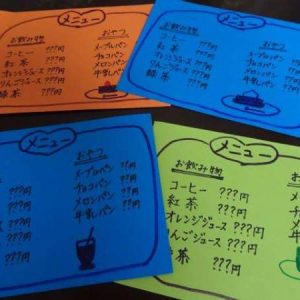 メニュー
お飲み物
コーヒー ???円
紅茶 ???円
オレンジジュース ???円
りんごジュース ???円
緑茶 ???円
おやつ
メープルパン ??円
チョコパン ??円
メロンパン ??円
牛乳パン ??円
メニュー
お飲み物
コーヒー ???円
紅茶 ???円
オレンジジュース ???円
りんごジュース ???円
緑茶 ???円
おやつ
メープルパン
チョコパン
メロンパン
牛乳パン
メニュー
???円
???円
???円
???円
???円
おやつ
メープルパン ??円
チョコパン ??円
メロンパン ??円
牛乳パン ??円
メニュー
お飲み物
コーヒー ???円
紅茶 ???円
オレンジジュース ???円
りんごジュース ???円
茶 ???円